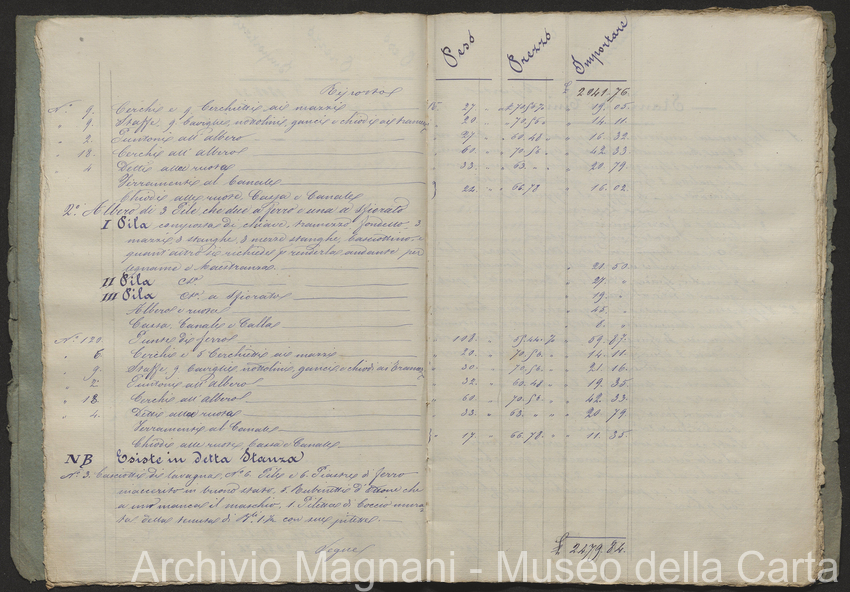 Peso Prezzo Importare
Riportas £ 2041,76.
N.° 9. Cerchi e 9. Cerchietti ai mazzi 27 " 70,56 19. 05.
" 9. Staffe, 9 nottolini, ganci e chiodi ai 20. " 70,56. 14. 11.
" 2. Puntoni all'albero 27 " 60.48 16. 32.
" 18. Cerchi all'albero 60. " 70.56 42 33
" 4 Detti alla ruota 33. " 63. 20 79.
Ferramenti al Canale
Chiodi alle ruote, Cassa e Canale 24. " 66,78 16. 02
2.° Albero di 3 Pile che due a ferro e una a sfiorato
I Pila composta di chiave, tramezzo, fondello, 3
mazzi, 3 stanghe, 3 mezze stanghe,
quant'altro si richiede p renderla andante per
legname e Maestranza 20. 50.
II Pila C.e 27. "
III Pila C.e a sfiorato 19. "
Albero e ruota 45. "
Cassa, Canale e Calla 6. "
N.° 120 Punte di ferro 108. 59. 87.
" Cerchi e 5 Cerchietti ai mazzi 20. " 70,56. 14. 11
" 9. Staffe, 9 nottolini, ganci e chiodi ai 30. " 70,56. 21. 16.
" 2. Puntoni all'albero 32. " 60.48 19. 35.
" 18. Cerchi all'albero 60 " 70,56 42. 33.
" 4. Detti alla ruota 33 " 63. 20. 79
Ferramenti al Canale
Chiodi alle ruote Cassa e Canale 17. " 66,78. 11. 35.
NB Esiste in detta Stanza
N.° 3. di lavagna, N.° 6 Pile e 6. Piastre di ferro
in buono stato, 5 Rubinetti d'Ottone che
a uno manca il maschio, 1. Piletta di Coccio
della tenuta di N.° con sue
Segue £ 2479.84.
Archivio Magnani - Museo della Carta